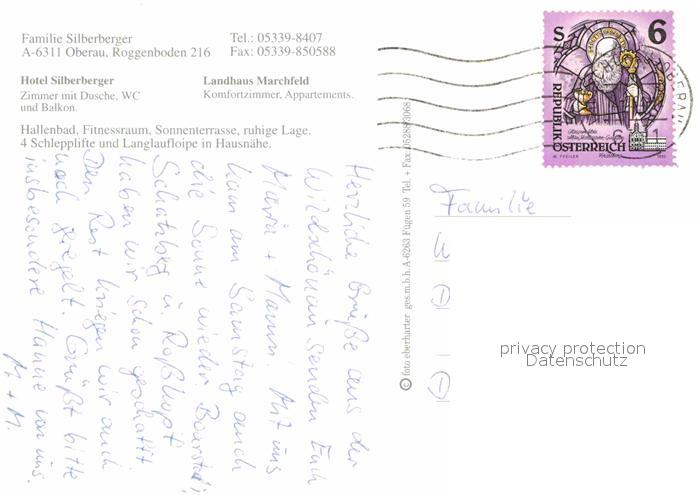 Familie Silberberger
A-6311 Oberau, Roggenboden 216
Tel.: 05339-8407
Fax: 05339-850588
Hotel Silberberger
Zimmer mit Dusche, WC
und Balkon.
Landhaus Marchfeld
Komfortzimmer, Appartements.
Hallenbad, Fitnessraum, Sonnenterrasse, ruhige Lage.
4 Schlepplifte und Langlaufloipe in Hausnähe.
Herzliche Grüße aus der
Wildschönau senden Euch
Maria + Mann. Mit uns
kam am Samstag auch
die Sonne wieder
Schatzberg u. Roßkopf
haben wir schon geschafft.
Den Rest kriegen wir auch
noch geregelt. Grüßt bitte
insbesondere Hanne von uns.
M + M.
© foto eberharter ges.m.b.h A-6263 Fügen 59 Tel. + Fax 05288/63068
S 6
REPUBLIK
ÖSTERREICH
OBERAU
Familie
privacy protection
Datenschutz